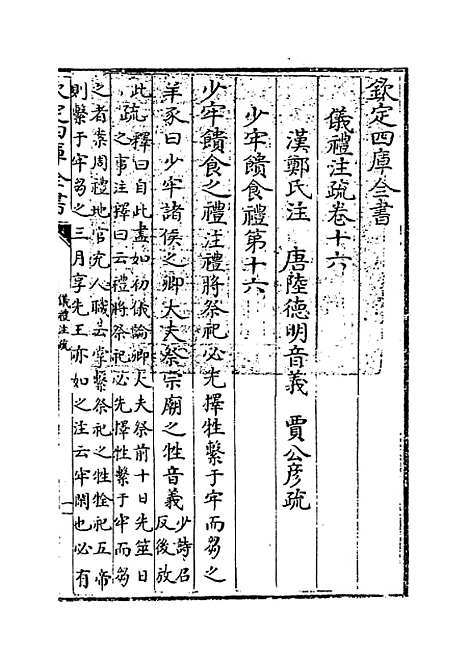 欽定四庫全書
儀禮注疏卷十六
漢鄭氏注 唐陸德明音義 賈公彦疏
少牢饋食禮第十六
少牢饋食之禮注禮將祭祀必先擇牲繫于牢而芻之
羊豕曰少牢諸侯之卿大夫祭宗廟之牲音義少詩召
反後放
此疏釋曰自此盡如初儀論卿大夫祭前十日先筮日
之事注釋曰云禮將祭祀必先擇牲繫于牢而芻
之者案周禮地官充人職云掌繫祭祀之牲牷祀五帝
則繫于牢芻之三月享先王亦如之注云牢閑也必有
欽定四庫全書
儀禮注疏
一